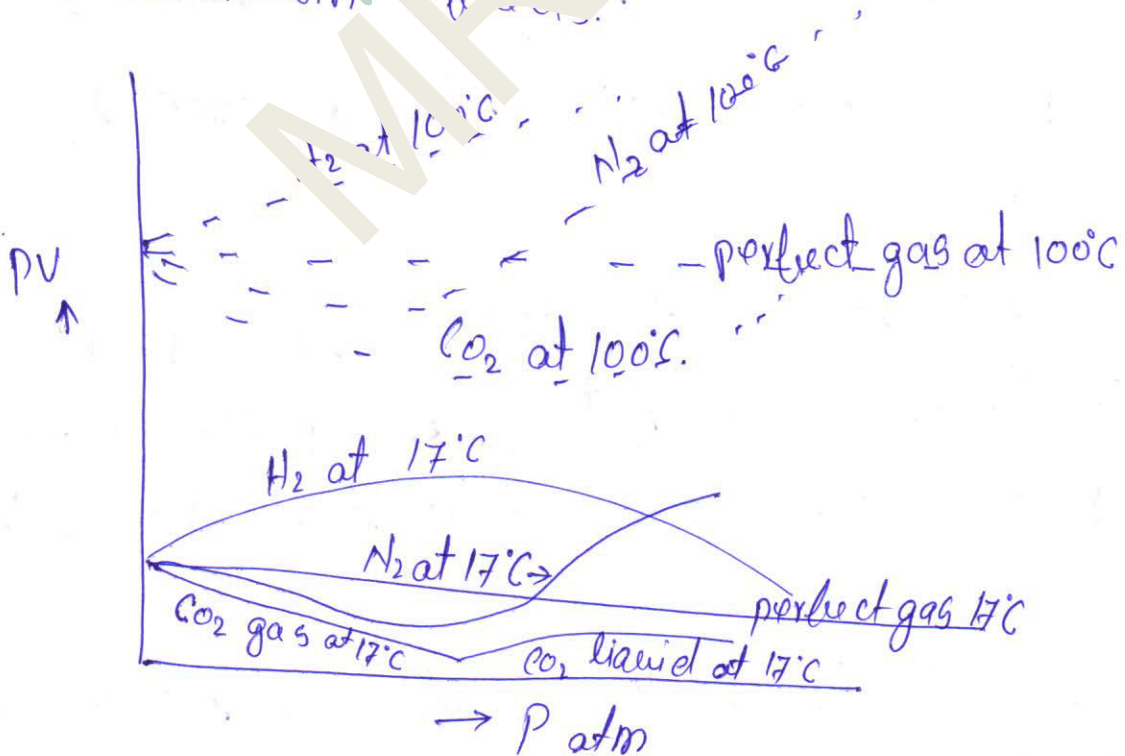 H2 at 100°C
N2 at 100°C
PV
↑
perfect gas at 100°C
CO2 at 100°C.
H2 at 17°C
N2 at 17°C→
perfect gas 17°C
CO2 gas at 17°C
CO2 liquid at 17°C
→ P atm